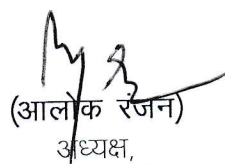 (आलोक रंजन)
अध्यक्ष,